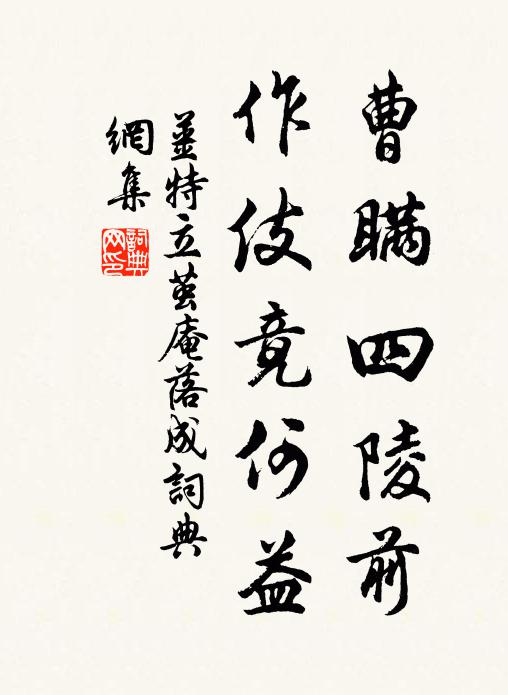 曹瞞四陵前
作伎竟何益
薑特立茧庵落成詞典
網集
詞典
网印